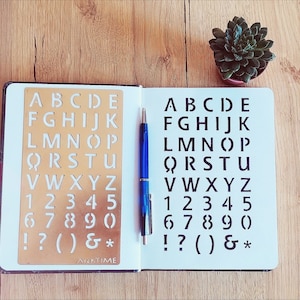 ABCDE
FGHIJK
LMNOP
QRSTU
VWXYZ
12345
67890
!?()&*
ABCDE
FGHIJK
LMNOP
QRSTU
VWXYZ
12345
67890
!?()&*